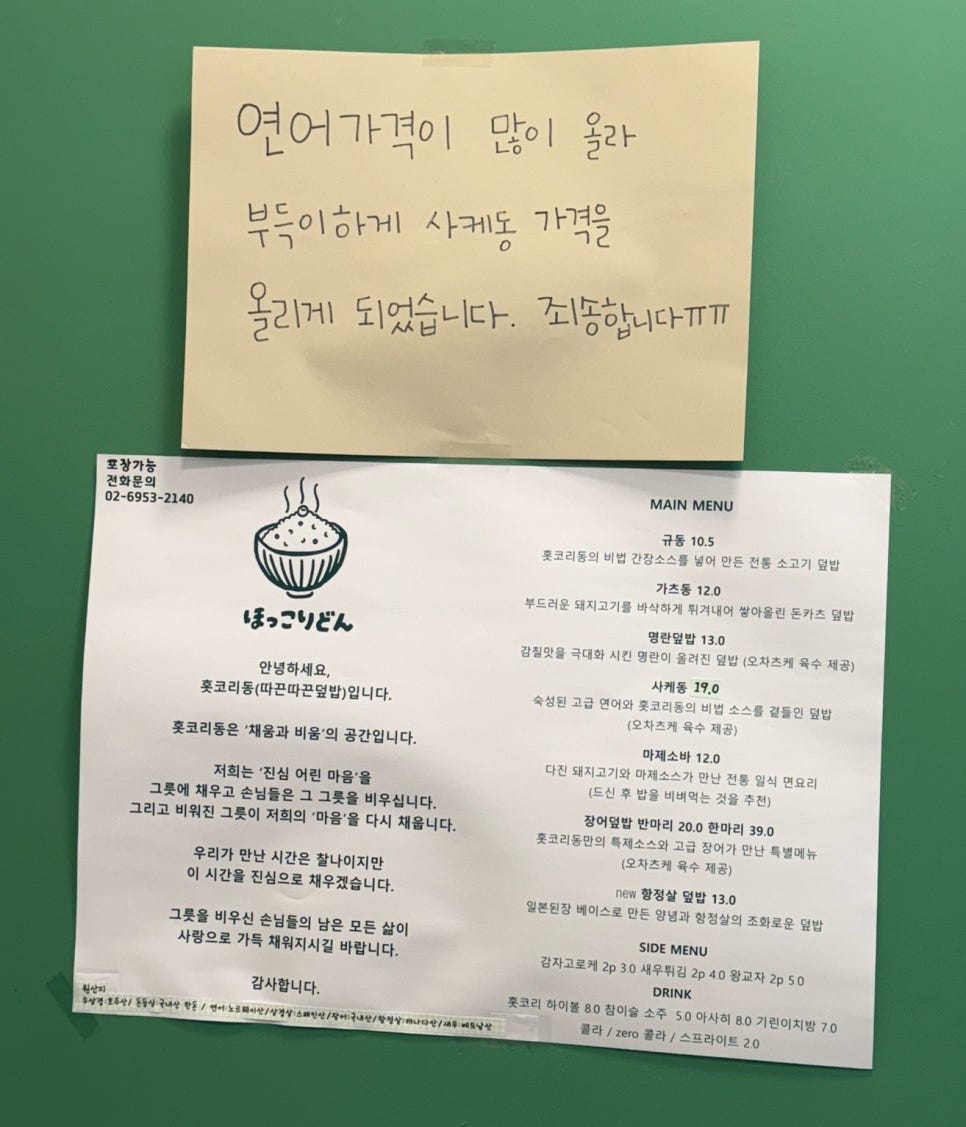 연어가격이 많이 올라
부득이하게 사케동 가격을
올리게 되었습니다. 죄송합니다ㅠㅠ
포장가능
전화문의
02-6953-2140
ほっこりどん
안녕하세요,
홋코리동(따끈따끈덮밥)입니다.
홋코리동은 '채움과 비움'의 공간입니다.
저희는 '진심 어린 마음'을
그릇에 채우고 손님들은 그 그릇을 비우십니다.
그리고 비워진 그릇이 저희의 '마음'을 다시 채웁니다.
우리가 만난 시간은 찰나이지만
이 시간을 진심으로 채우겠습니다.
그릇을 비우신 손님들의 남은 모든 삶이
사랑으로 가득 채워지시길 바랍니다.
감사합니다.
원산지
우삼겹:호주산/ 돈등심:국내산 한돈 / 연어:노르웨이산/삼겹살:스페인산/장어:국내산/항정살:캐나다산/새우:베트남산
MAIN MENU
규동 10.5
홋코리동의 비법 간장소스를 넣어 만든 전통 소고기 덮밥
가츠동 12.0
부드러운 돼지고기를 바삭하게 튀겨내어 쌓아올린 돈카츠 덮밥
명란덮밥 13.0
감칠맛을 극대화 시킨 명란이 올려진 덮밥 (오차츠케 육수 제공)
사케동 19.0
숙성된 고급 연어와 홋코리동의 비법 소스를 곁들인 덮밥
(오차츠케 육수 제공)
마제소바 12.0
다진 돼지고기와 마제소스가 만난 전통 일식 면요리
(드신 후 밥을 비벼먹는 것을 추천)
장어덮밥 반마리 20.0 한마리 39.0
홋코리동만의 특제소스와 고급 장어가 만난 특별메뉴
(오차츠케 육수 제공)
new 항정살 덮밥 13.0
일본된장 베이스로 만든 양념과 항정살의 조화로운 덮밥
SIDE MENU
감자고로케 2p 3.0 새우튀김 2p 4.0 왕교자 2p 5.0
DRINK
홋코리 하이볼 8.0 참이슬 소주 5.0 아사히 8.0 기린이치방 7.0
콜라 / zero 콜라 / 스프라이트 2.0